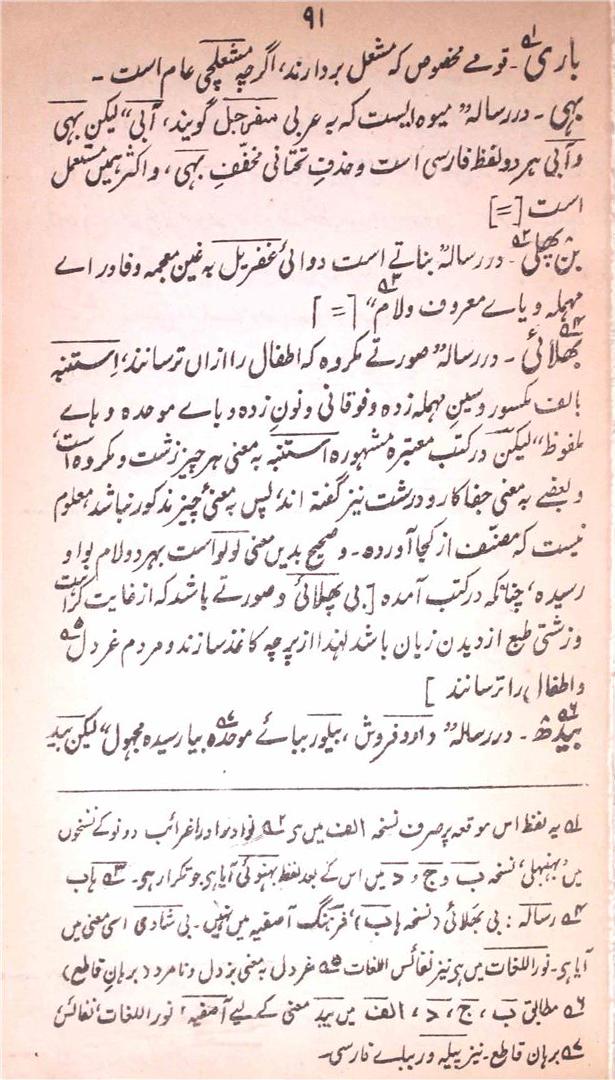 ۹۱
باری؎۱ ۔ قومے مخصوص کہ مشعل بردارند، اگرچہ مشعلچی عام است ۔
بہی ۔ در رسالہ ”میوہ ایست کہ بہ عربی سفرجل گویند، آبی“ لیکن بہی
و آبی ہر دو لفظ فارسی است و حذفِ تحتانی مخففِ بہی، و اکثر ہمیں مستعمل
است [=]
بن پھلی؎۲ ۔ در رسالہ ”بناتے است دوائی غفریل بہ غین معجمہ و فا و راے
مہملہ و یاے معروف و لام؎۳“ [=]
بھلائی؎۴ ۔ در رسالہ ”صورتے مکروہ کہ اطفال را ازاں ترسانند، اِستنبہ
بالف مکسور و سین مہملہ زدہ و فوقانی و نون زدہ و باے موحدہ و ہاے
ملفوظ“ لیکن در کتب معتبرہ مشہورہ استنبہ بہ معنی ہر چیز زشت و مکروہ است،
و بعضے بہ معنی جفا کار و درشت نیز گفتہ اند، پس بہ معنیٔ چیز مذکور نباشد، معلوم
نیست کہ مصنف از کجا آوردہ ۔ و صحیح بدیں معنی لولو است بہر دو لام بواو
رسیدہ، چنانکہ در کتب آمدہ [بی پھلائی و صورتے باشد کہ از غایت کراہیت
و زشتی طبع از دیدن زیان باشد لہٰذا از پرچہ کاغذ سازند و مردم غردل؎۵
و اطفال را ترسانند ]
بیدھ؎۶ ۔ در رسالہ ”دارو فروش، بیلور ببائے موحدہ؎۷ بیا رسیدہ مجہول“ لیکن بید
؎۱ یہ لفظ اس موقعہ پر صرف نسخہ الف میں ہی ؎۲ نوادر اور غرائب دونو کے نسخوں
میں ’بھنبھلی‘ نسخہ ب و ج و د میں اس کے بعد لفظ بہنوئی آیا ہی جو تکرار ہی۔ ؎۳ ہاب
؎۴ رسالہ : بی بھلائی (نسخہ ہاب)، فرہنگ آصفیہ میں نہیں۔ بی شادی اسی معنی میں
آیا ہی۔ نور اللغات میں ہی نیز نفائس اللغات ؎۵ غردل بہ معنی بزدل و نامرد (برہان قاطع)
؎۶ مطابق ب، ج، د، الف میں بید معنی کے لیے آصفیہ، نور اللغات، نفائس
؎۷ برہان قاطع۔ نیز پیلہ ور ببلے فارسی۔